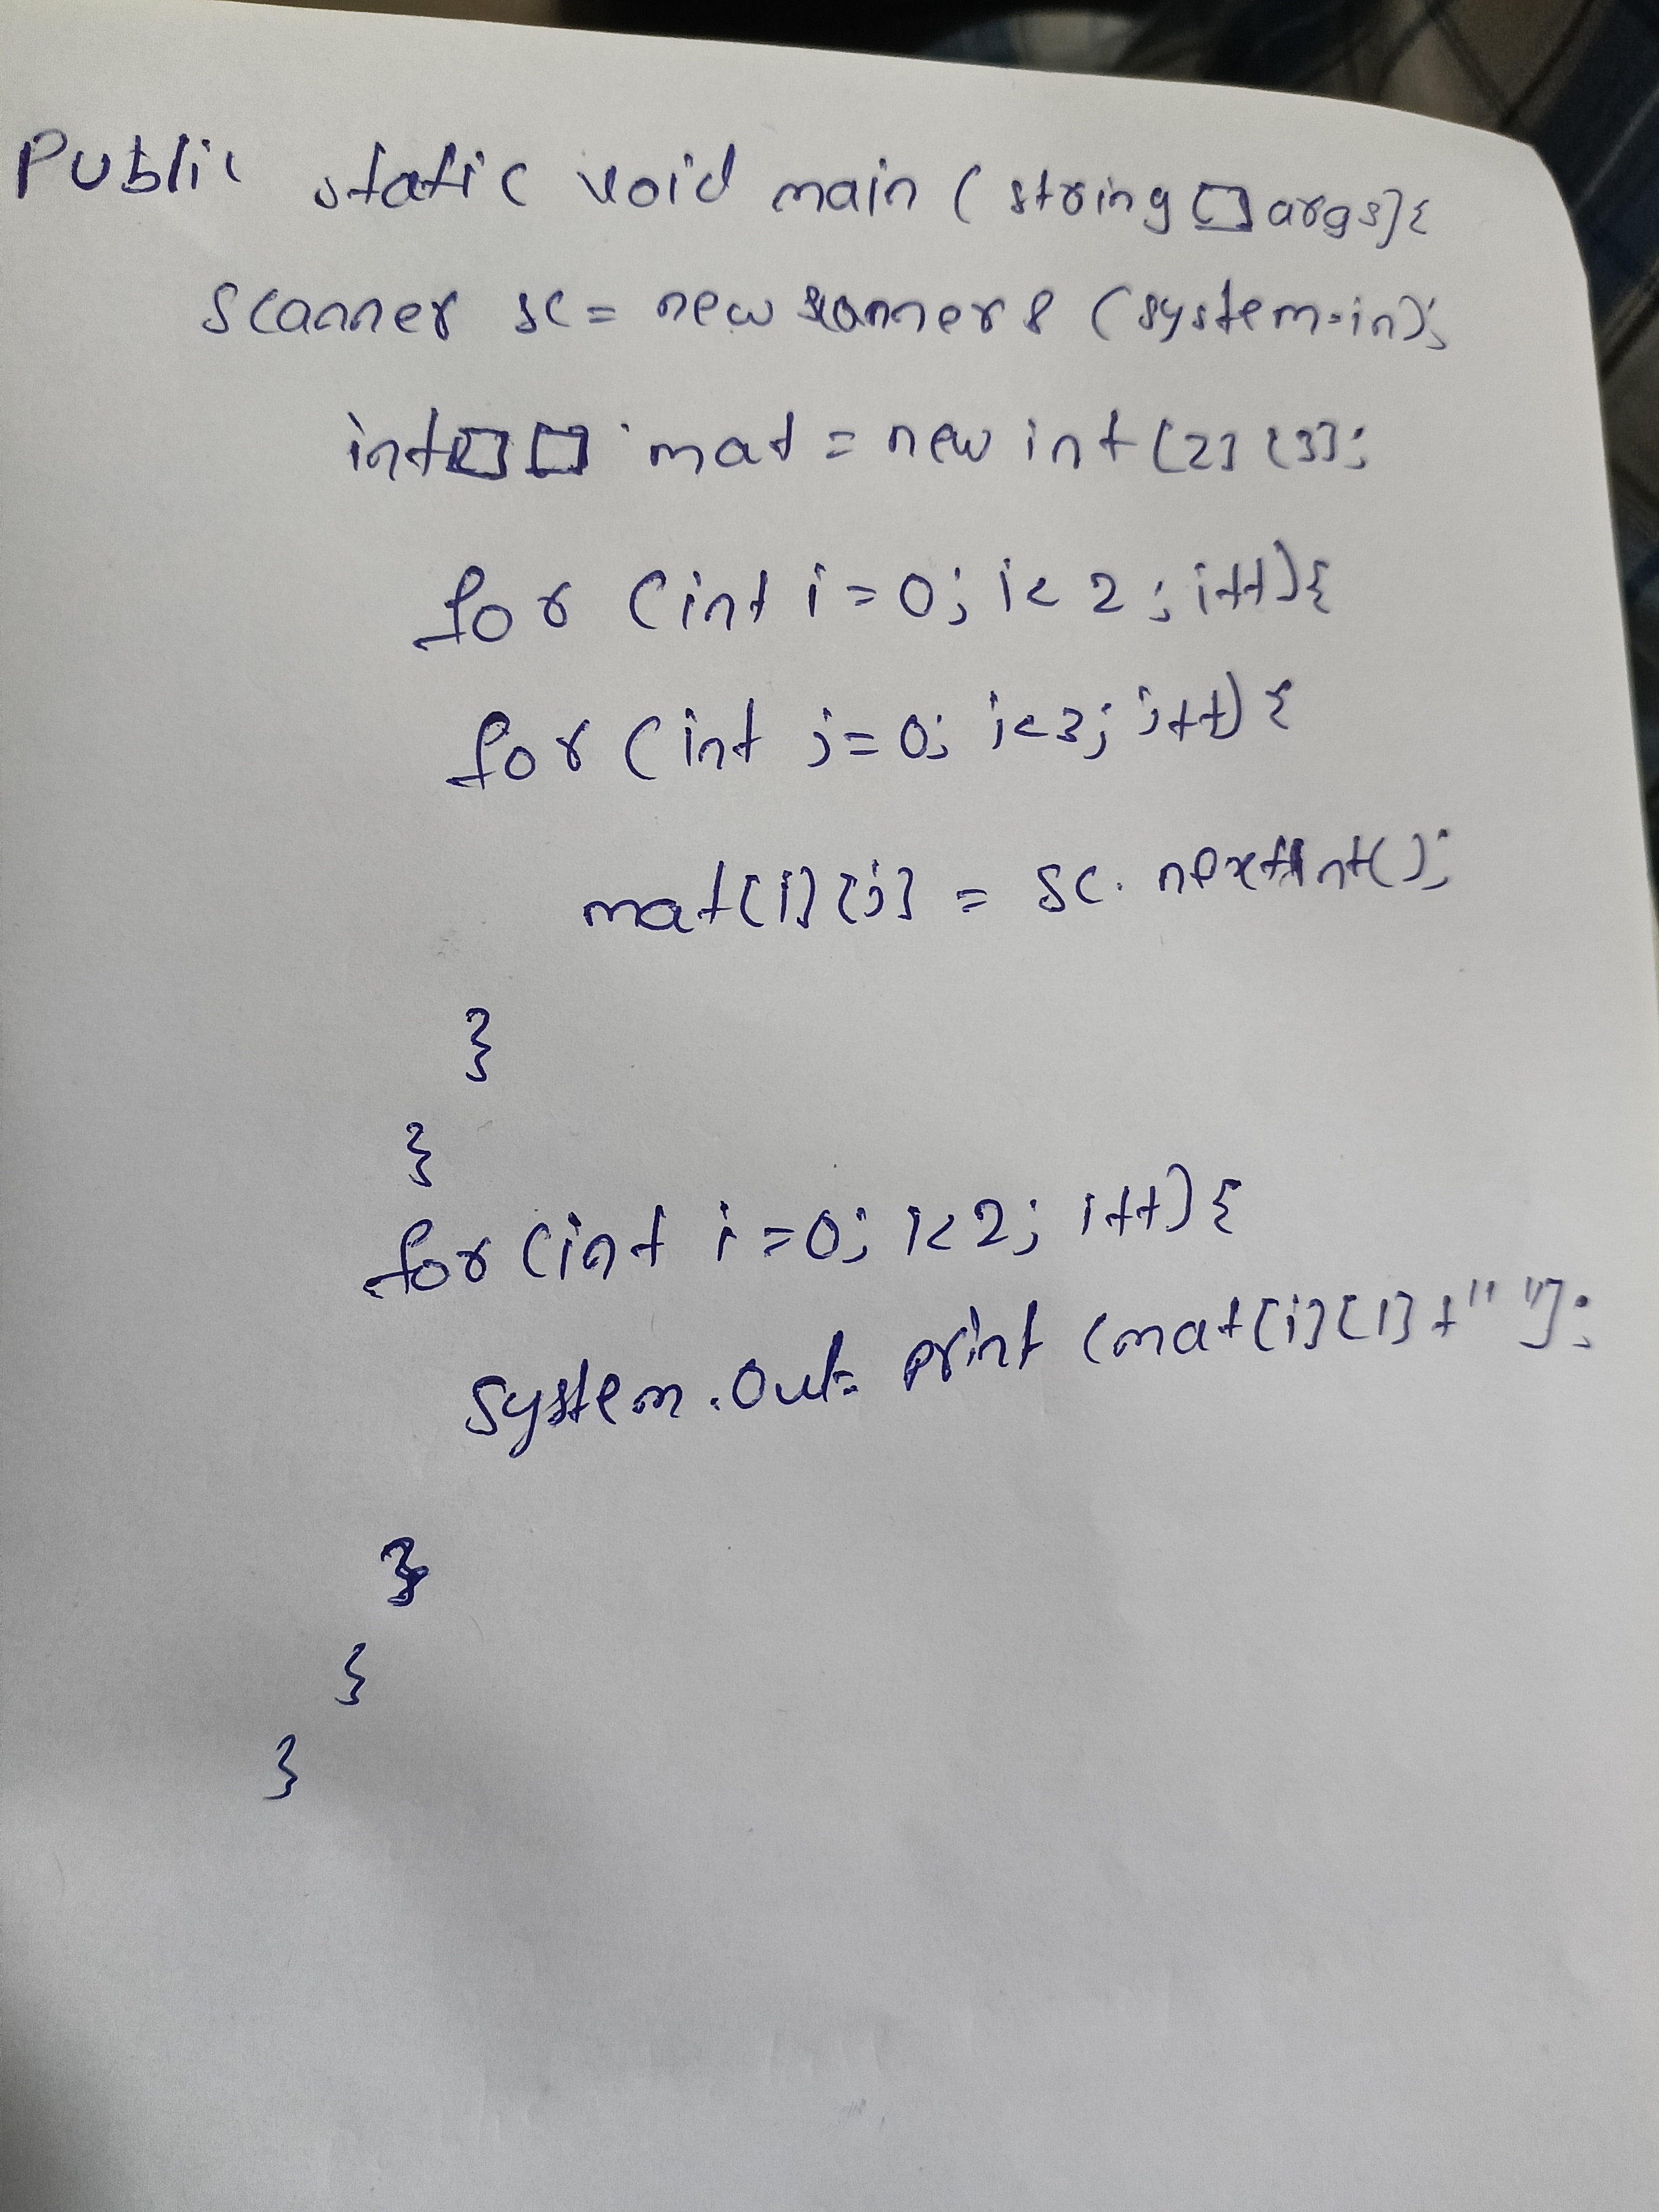 Public static void main (string [] args){
Scanner sc = new scanner8 (system.in);
int[] [] mat = new int [2] [3];
for (int i = 0; i < 2 ; i++){
for (int j = 0; j<3; j++) {
mat[i] [j] = sc. nextInt();
}
}
for (int i = 0; i<2; i++) {
System.out. print (mat[i][1] + " ");
}
}
}